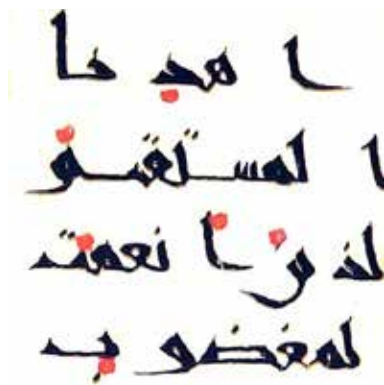 ا هد نا
ا لمستقيم
لذ ين ا نعمت
لمغضو ب